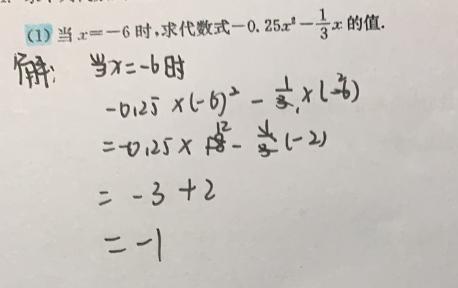 (1) 当 x=-6 时,求代数式-0.25x²-1/3x 的值.
解: 当x=-6时
-0.25×(-6)²-1/3×(-6)
=-0.25×12-1/3(-2)
=-3+2
=-1